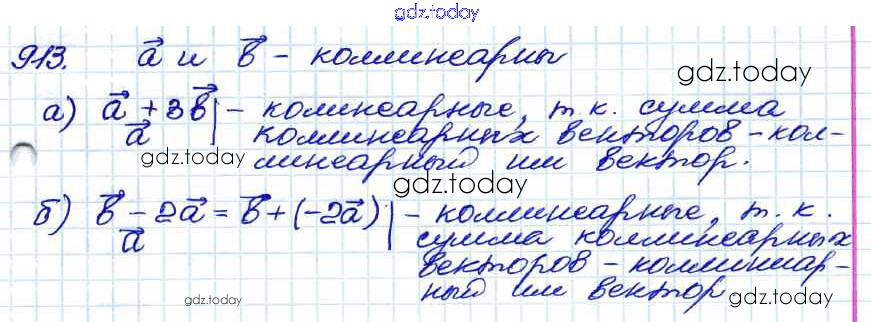 gdz.today
913. a⃗ и b⃗ - коллинеарны
gdz.today
а) a⃗ + 3b⃗ | - колинеарные, т.к. сумма
a⃗ | коллинеарных векторов - кол-
gdz.today линеарный им вектор.
gdz.today
б) b⃗ - 2a⃗ = b⃗ + (-2a⃗) | - коллинеарные, т.к.
a⃗ | сумма коллинеарных
векторов - коллиниар-
ный им вектор
gdz.today gdz.today